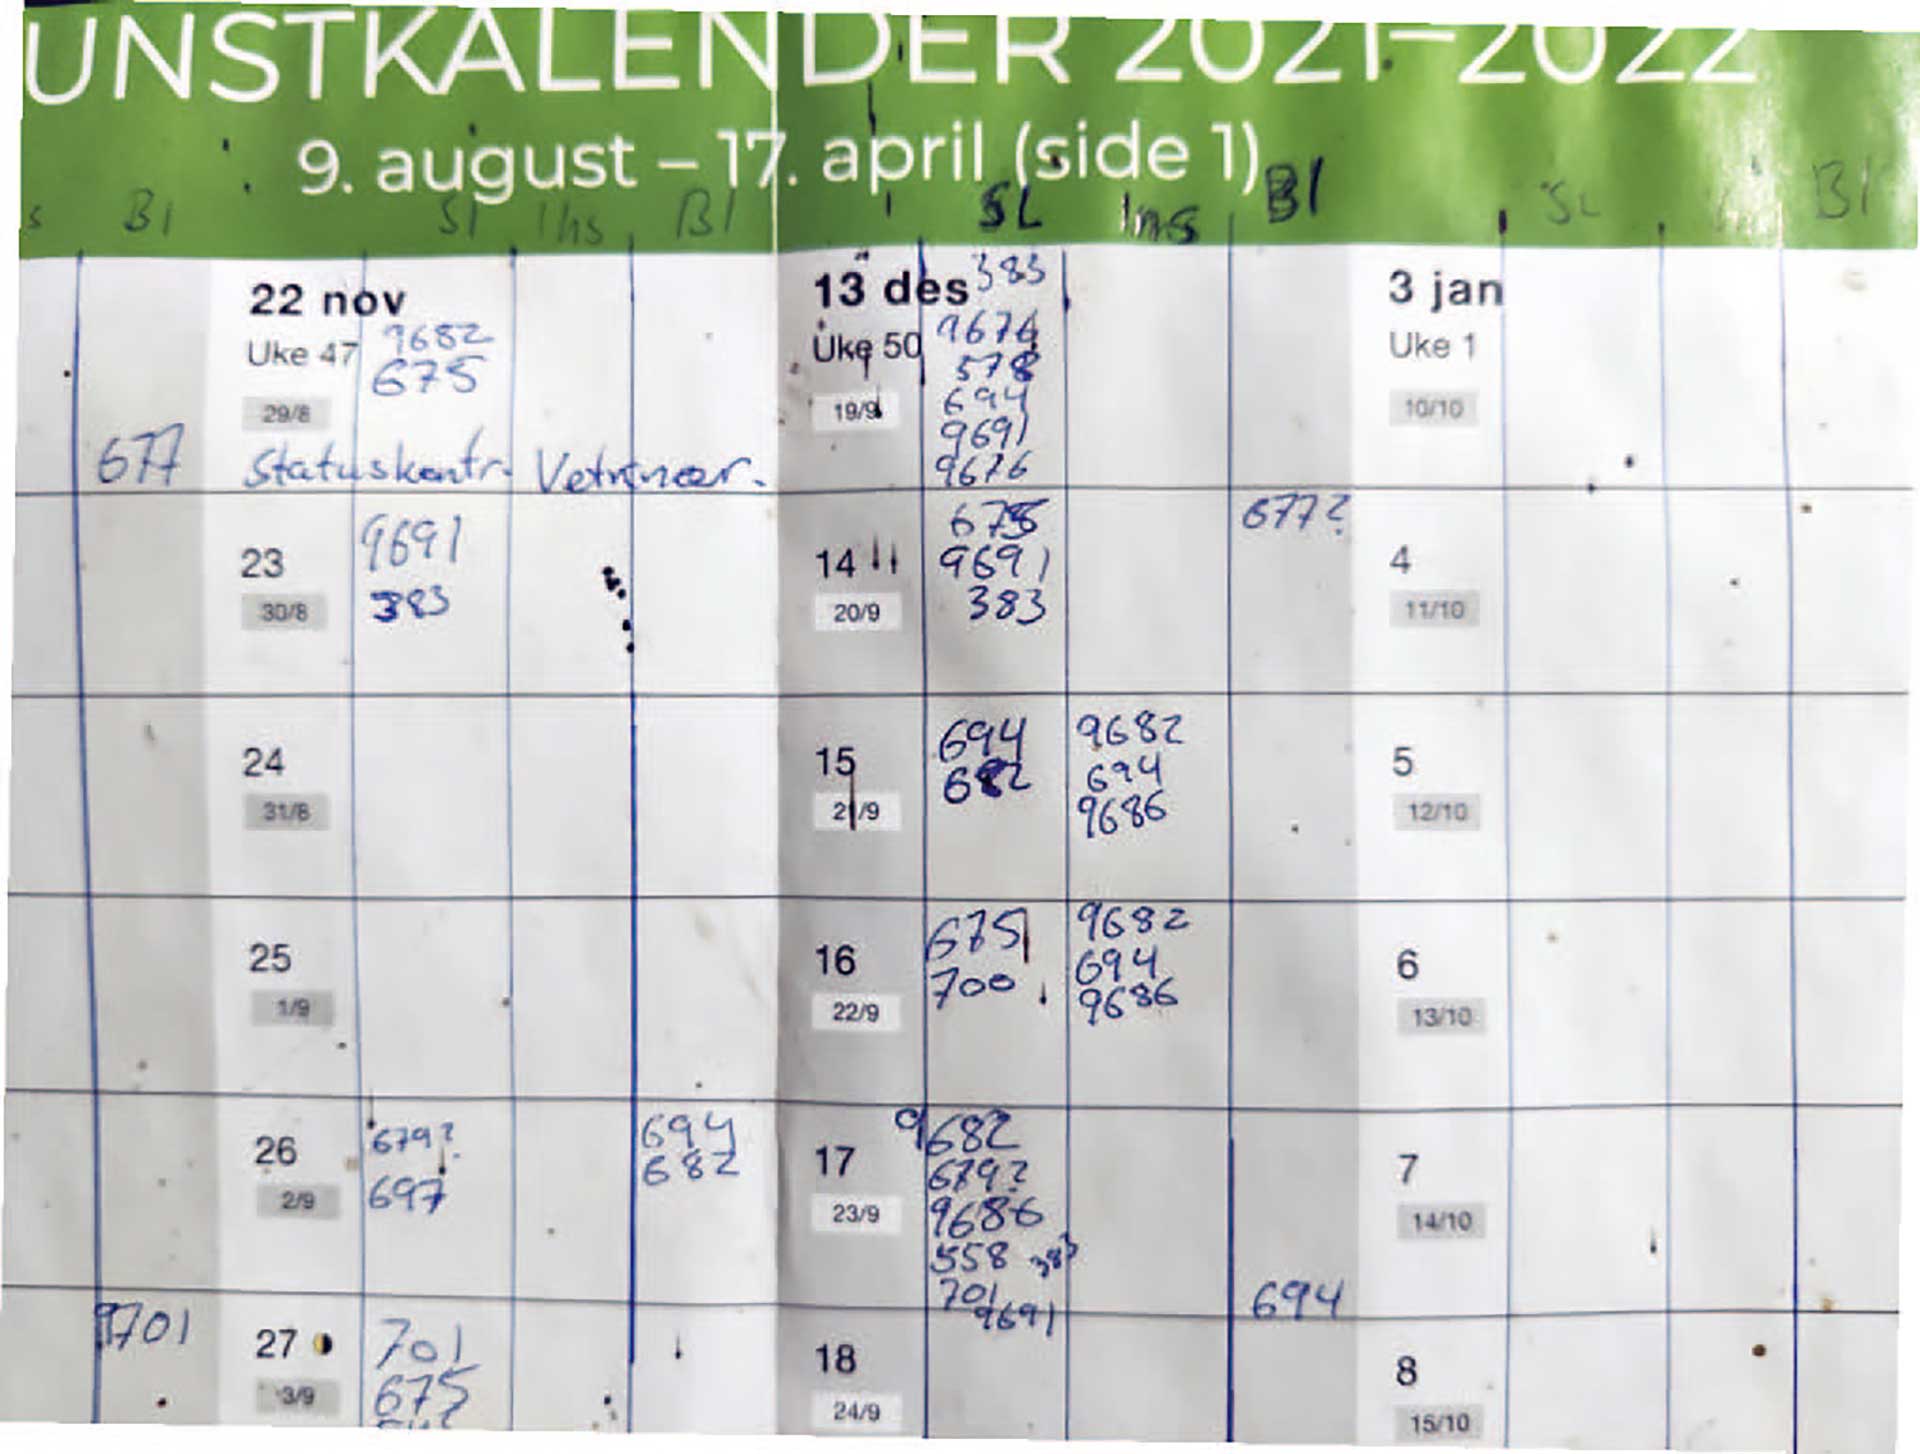 UNSTKALENDER 2021–2022
9. august – 17. april (side 1)
s Bl Sl Ins Bl SL Ins Bl SL Bl
22 nov
Uke 47
29/8
9682
675
677
Statuskontr. Vetrinær.
23
30/8
9691
383
24
31/8
25
1/9
26
2/9
679?
697
694
682
9701
27
3/9
701
675
13 des
Uke 50
19/9
383
9676
578
694
9691
9676
14
20/9
675
9691
383
677?
15
21/9
694
682
9682
694
9686
16
22/9
675
700
9682
694
9686
17
23/9
9682
679?
9686
558 383
701
9691
694
18
24/9
3 jan
Uke 1
10/10
4
11/10
5
12/10
6
13/10
7
14/10
8
15/10